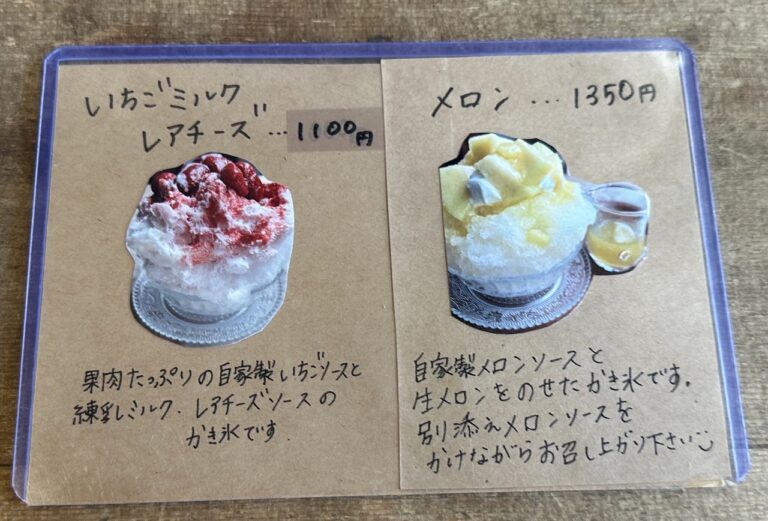 いちごミルク
レアチーズ…1100円
果肉たっぷりの自家製いちごソースと
練乳ミルク、レアチーズソースの
かき氷です
メロン…1350円
自家製メロンソースと
生メロンをのせたかき氷です。
別添えメロンソースを
かけながらお召し上がり下さい